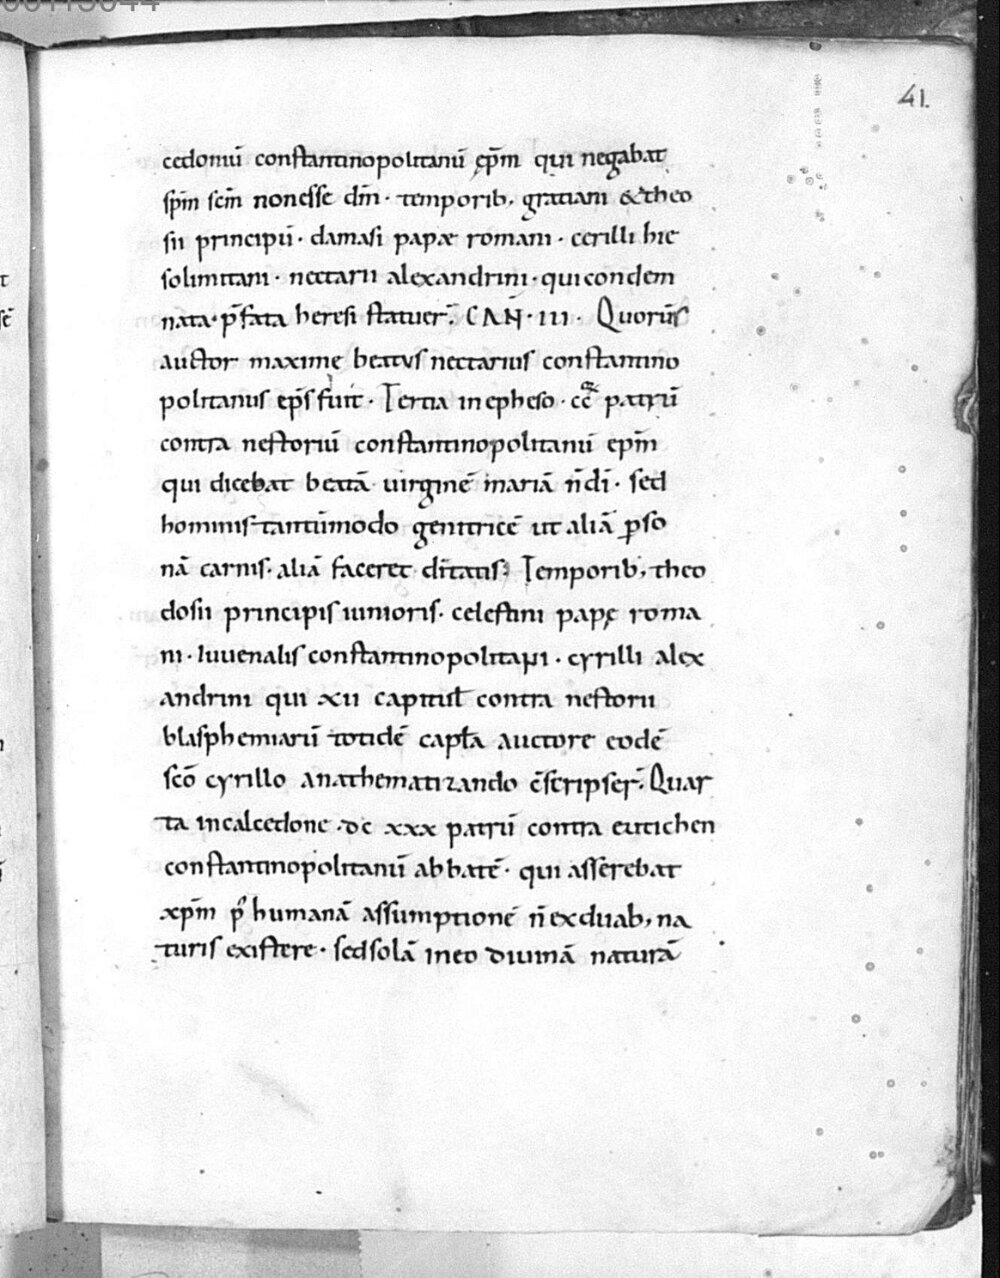 41.
cedomū constantinopolitanū ep̄m qui negabat
sp̄m sc̄m non esse dm̄ · temporib; gratiani & theo
sii principū · damasi papæ romani · cerilli hie
solimitani · nectarii alexandrini · qui condem
nata · p̄fata heresi statuer̄. CAN̄ · III · Quorū
auctor maxime beatus nectarius constantino
politanus ep̄s fuit · Tertia in epheso · cc̄ patrū
contra nestoriū constantinopolitanū ep̄m
qui dicebat beatā uirginē mariā n̄ dī · sed
hominis tantūmodo genitricē ut aliā ꝑso
nā carnis · aliā faceret dītatis; Temporib; theo
dosii principis iunioris · celestini papę roma
ni · Iuuenalis constantinopolitani · cyrilli alex
andrini qui xii capitul̄ contra nestorii
blasphemiarū totidē capl̄a auctore eodē
sc̄o cyrillo anathematizando c̄scripser̄. Quar
ta in calcedone · dc xxx patrū contra euticħen
constantinopolitanū abbatē · qui asserebat
xp̄m p̓ humanā assumptionē n̄ ex duab; na
turis existere · sed solā in eo diuinā naturā